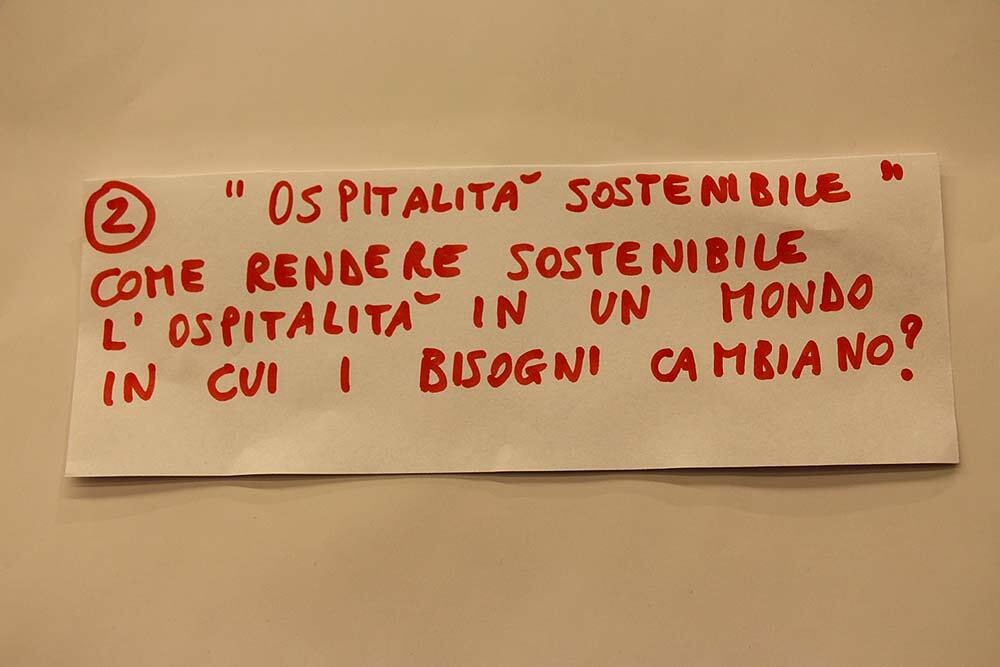 ② "OSPITALITÀ SOSTENIBILE"
COME RENDERE SOSTENIBILE
L'OSPITALITÀ IN UN MONDO
IN CUI I BISOGNI CAMBIANO?